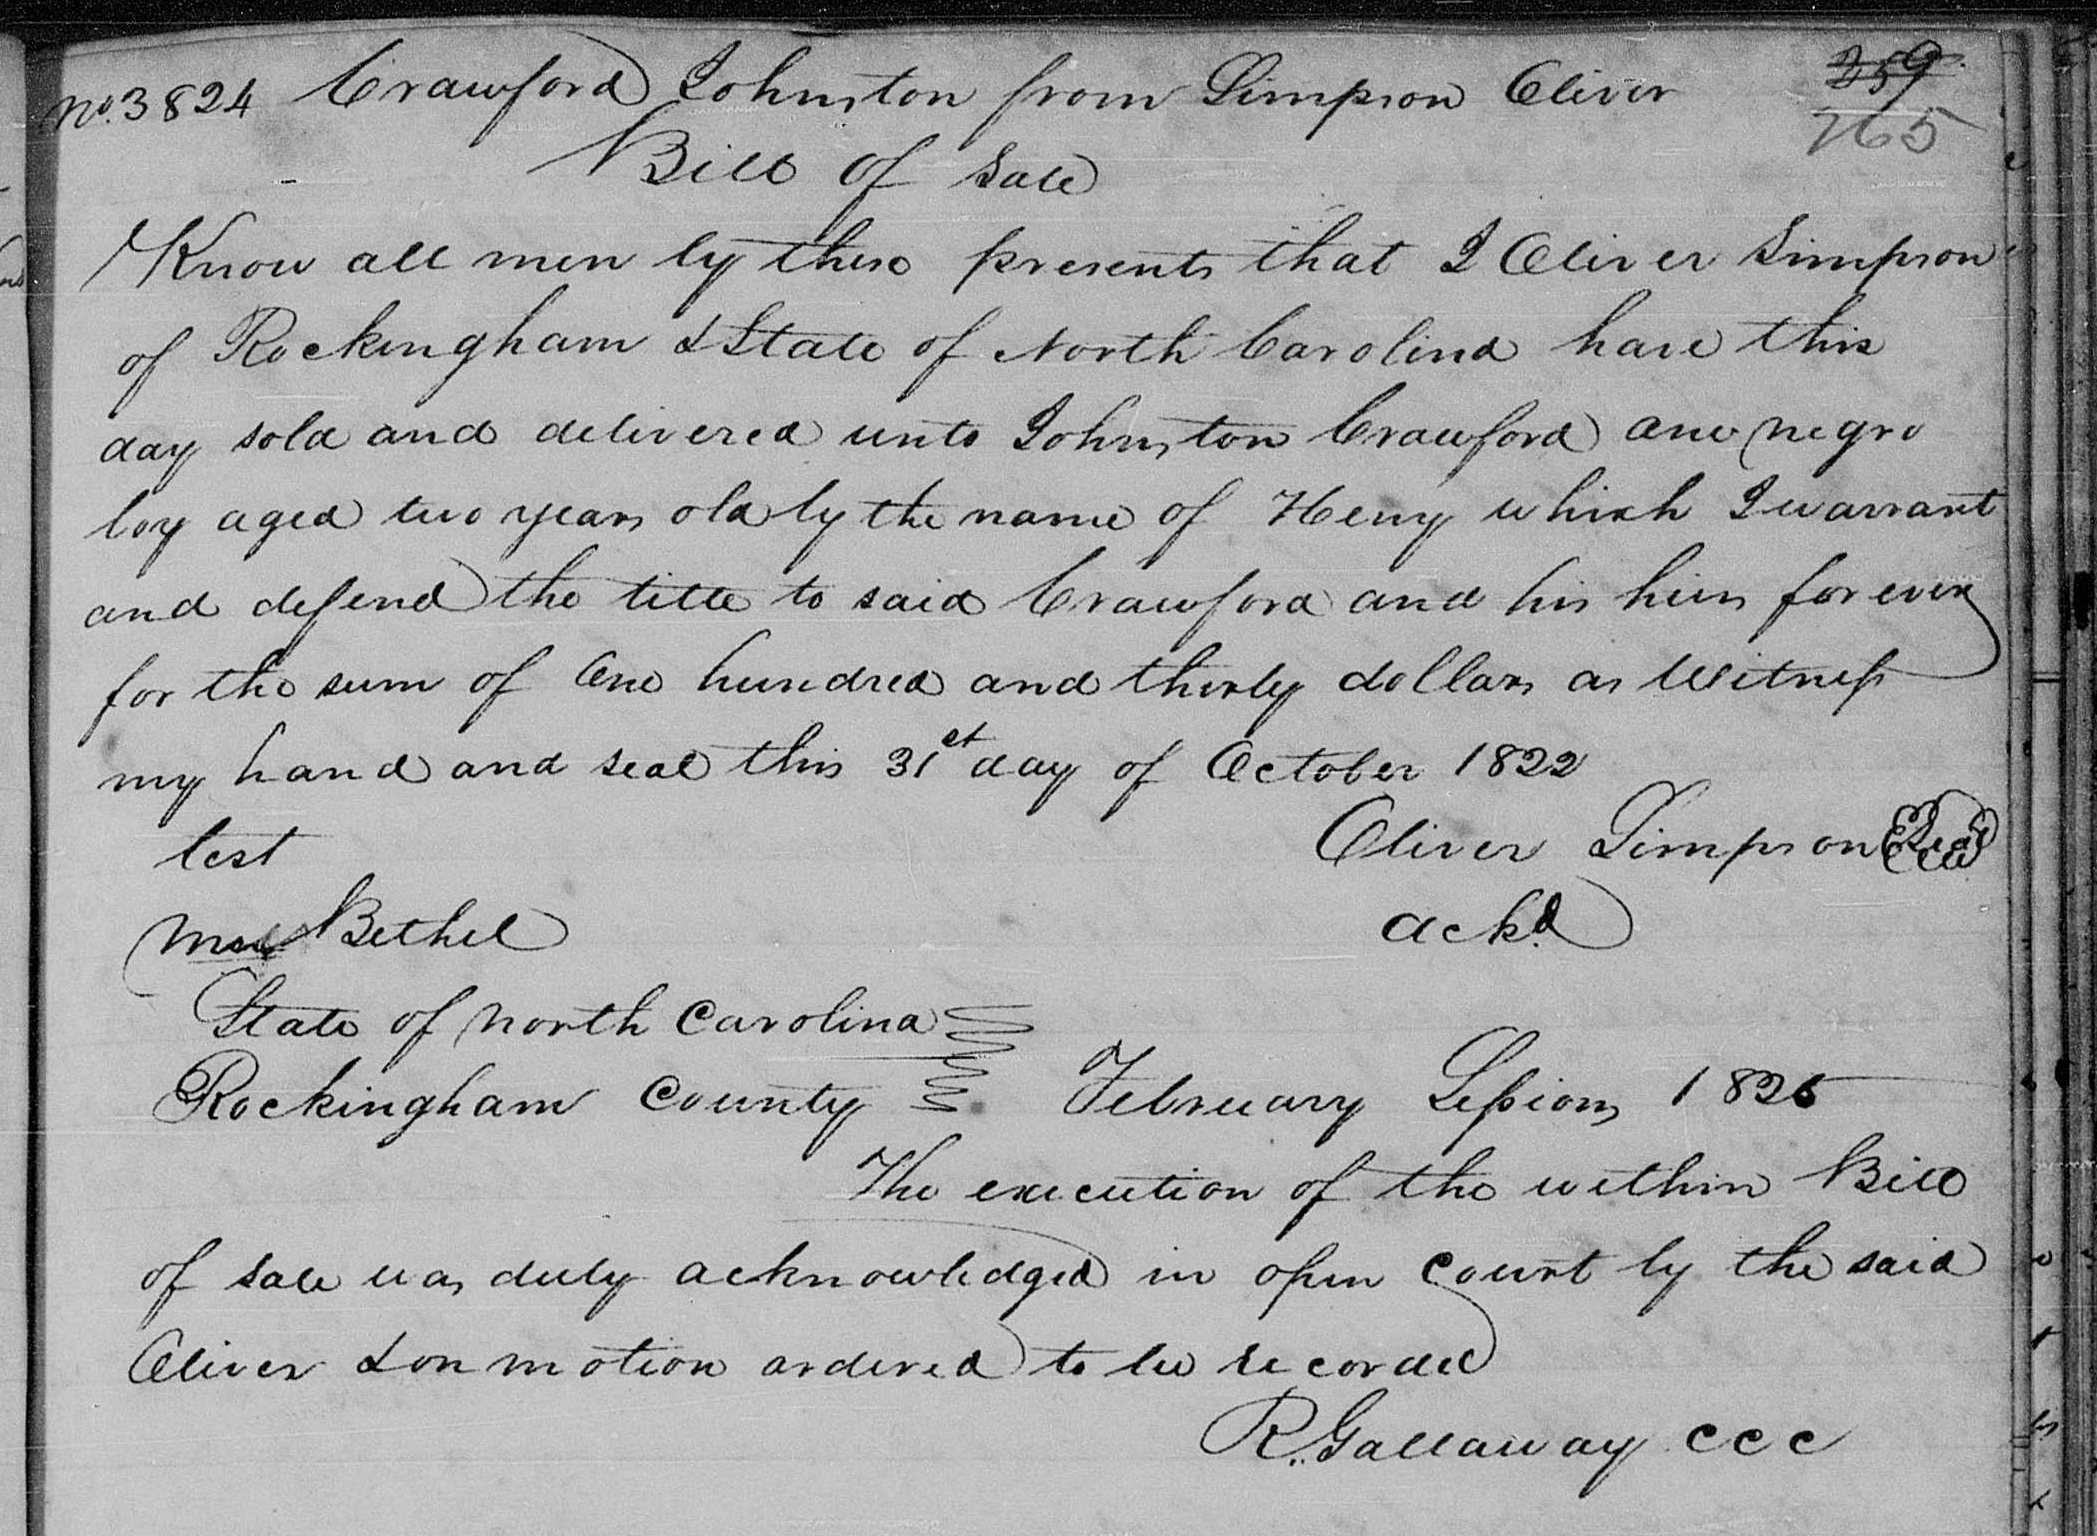 No. 3824 Crawford Johnston from Simpson Oliver 359
265
Bill of Sale
Know all men by these presents that I Oliver Simpson
of Rockingham & State of North Carolina have this
day sold and delivered unto Johnston Crawford one negro
boy aged two years old by the name of Henry which I warrant
and defend the title to said Crawford and his heirs forever
for the sum of One hundred and thirty dollars as Witness
my hand and seal this 31st day of October 1822
test Oliver Simpson Seal
Bethel ackd.
State of North Carolina
Rockingham County February Sessions 1825
The execution of the within Bill
of sale was duly acknowledged in open Court by the said
Oliver & on motion ordered to be recorded
R. Gallaway CCC